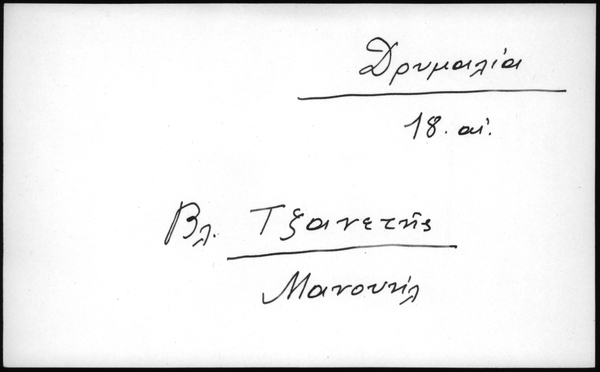 Δρυμαλία
18. αἰ.
Βλ. Τζανετῆς
Μανουήλ